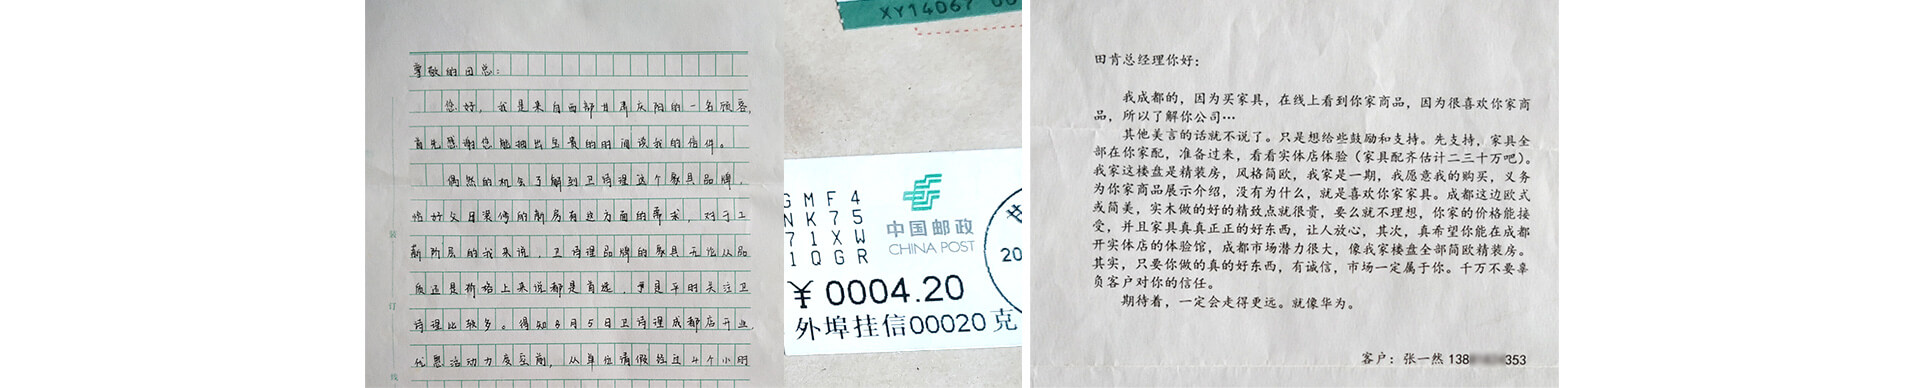 尊敬的田总:
您好,我是来自西部甘肃庆阳的一名顾客,
首先感谢您能抽出宝贵的时间读我的信件。
偶然的机会了解到卫诗理这个家具品牌,
恰好父母装修的新房有这方面的需求,对于工
薪阶层的我来说,卫诗理品牌的家具无论从品
质还是价格上来说都是首选,于是平时关注卫
诗理比较多。得知3月5日卫诗理成都店开业,
优惠活动力度空前,从单位请假经过4个小时
装
订
线
XY14067 00
GMF4
NK75
71XW
1QGR
中国邮政
CHINA POST
20
¥0004.20
外埠挂信00020克
田肯总经理你好:
我成都的,因为买家具,在线上看到你家商品,因为很喜欢你家商
品,所以了解你公司…
其他美言的话就不说了。只是想给些鼓励和支持。先支持,家具全
部在你家配,准备过来,看看实体店体验(家具配齐估计二三十万吧)。
我家这楼盘是精装房,风格简欧,我家是一期,我愿意我的购买,义务
为你家商品展示介绍,没有为什么,就是喜欢你家家具。成都这边欧式
或简美,实木做的好的精致点就很贵,要么就不理想,你家的价格能接
受,并且家具真真正正的好东西,让人放心,其次,真希望你能在成都
开实体店的体验馆,成都市场潜力很大,像我家楼盘全部简欧精装房。
其实,只要你做的真的好东西,有诚信,市场一定属于你。千万不要辜
负客户对你的信任。
期待着,一定会走得更远。就像华为。
客户:张一然 138 353